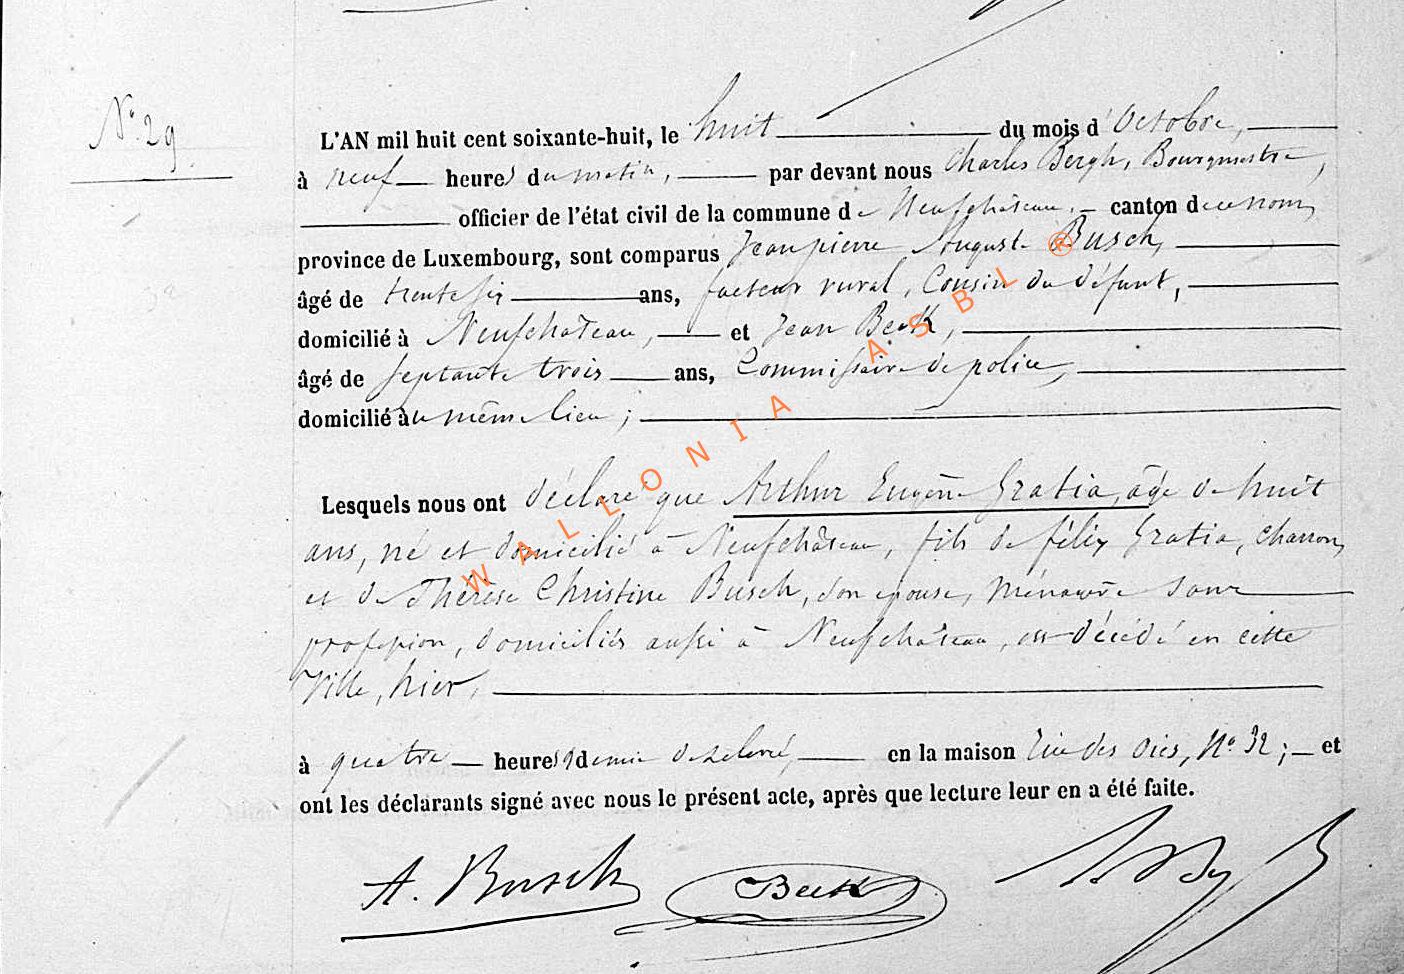 N° 29
L'AN mil huit cent soixante-huit, le huit du mois d'Octobre,
à neuf heures du matin, par devant nous Charles Bergh, Bourgmestre,
officier de l'état civil de la commune de Neufchâteau, canton de ce nom,
province de Luxembourg, sont comparus Jean pierre August Busch,
âgé de trente six ans, facteur rural, Cousin du défunt,
domicilié à Neufchateau, et Jean Beck,
âgé de septante trois ans, Commissaire de police,
domicilié au même lieu ;
Lesquels nous ont déclaré que Arthur Eugène Gratia, âgé de huit
ans, né et domicilié à Neufchâteau, fils de félix Gratia, charron,
et de Thérèse Christine Busch, son épouse, Ménagère sans
profession, domiciliés aussi à Neufchateau, est décédé en cette
Ville, hier,
à quatre heures et demie de relevée, en la maison rue des oies, N° 32 ; et
ont les déclarants signé avec nous le présent acte, après que lecture leur en a été faite.
A. Busch Beck
WALLONIA ASBL ®